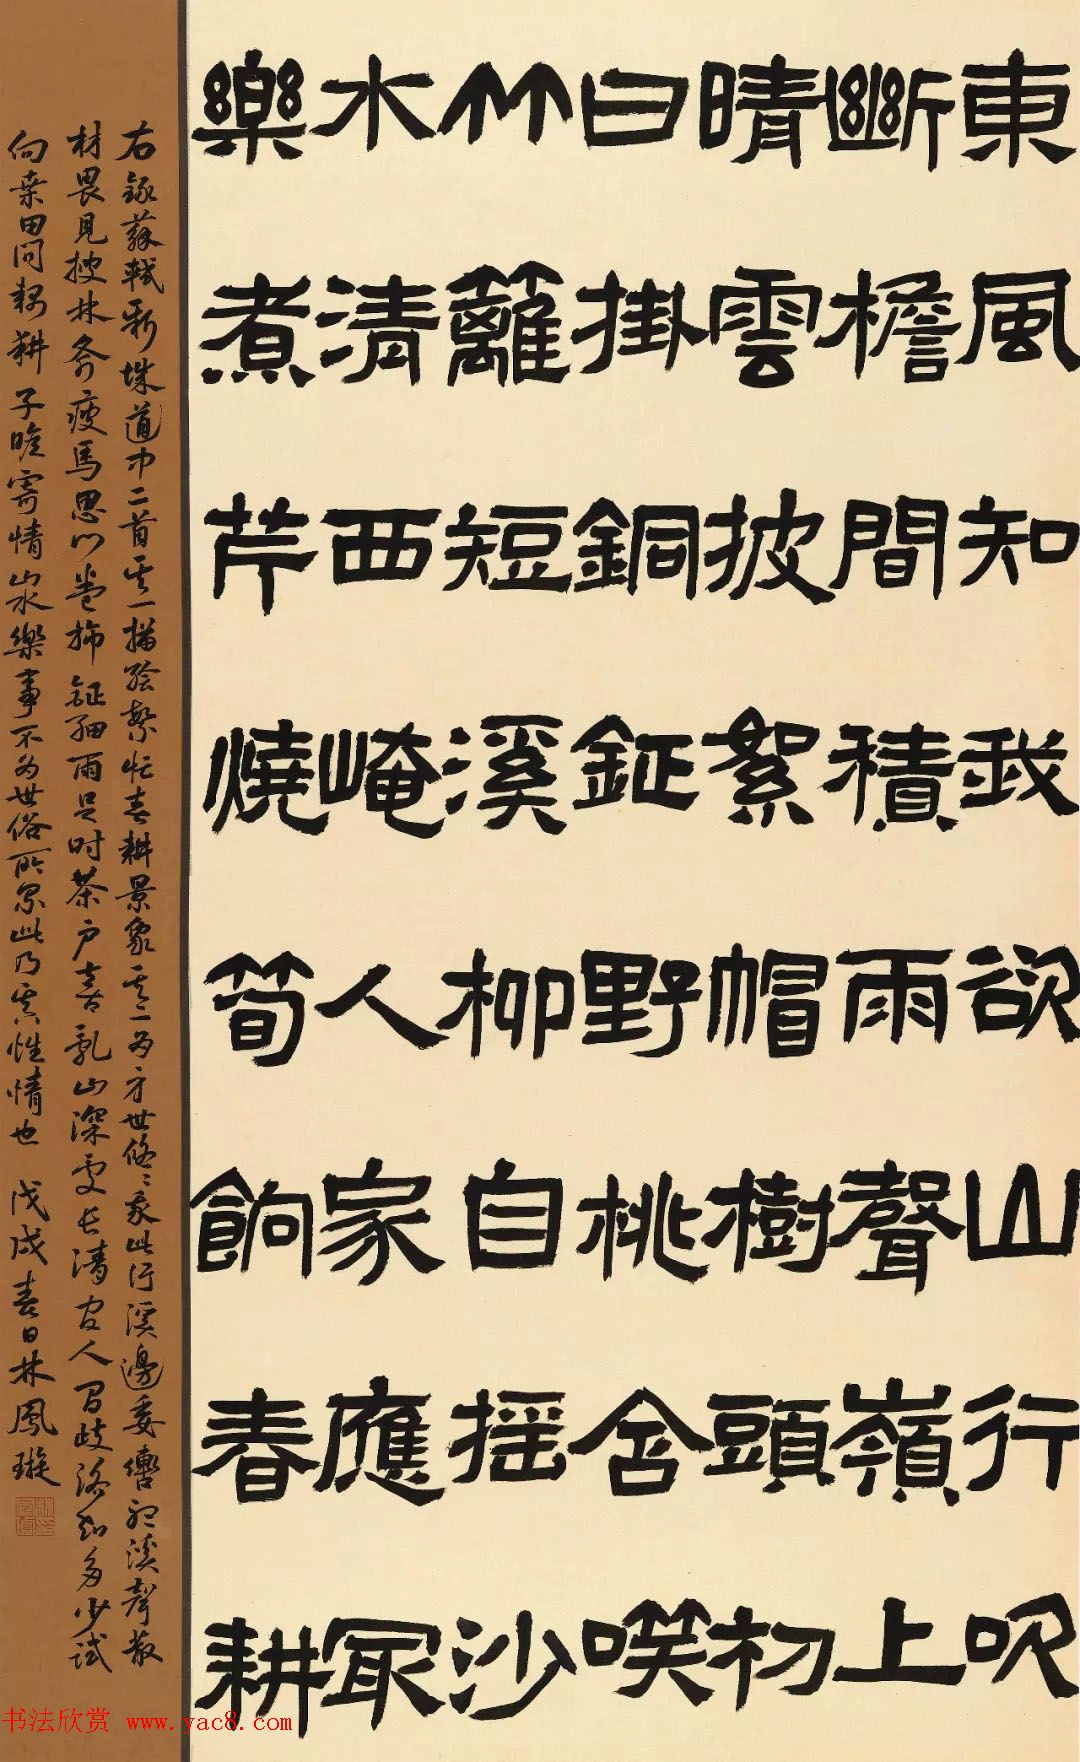 東風知我欲山行吹
斷檐間積雨聲嶺上
晴雲披絮帽樹頭初
日掛銅鉦野桃含笑
竹籬短溪柳自搖沙
水清西崦人家應冣
樂煮芹燒筍餉春耕
右錄蘇軾新城道中二首其一描繪繁忙春耕景象其二為身世悠悠我此行溪邊委轡聽溪聲散
材畏見搜林斧疲馬思聞卷旆鉦細雨足時茶戶喜亂山深處長清官人間歧路知多少試
向桑田問耦耕子瞻寄情山水樂事不為世俗所累此乃真性情也戊戌春日林鳳璇
书法欣赏 www.yac8.com